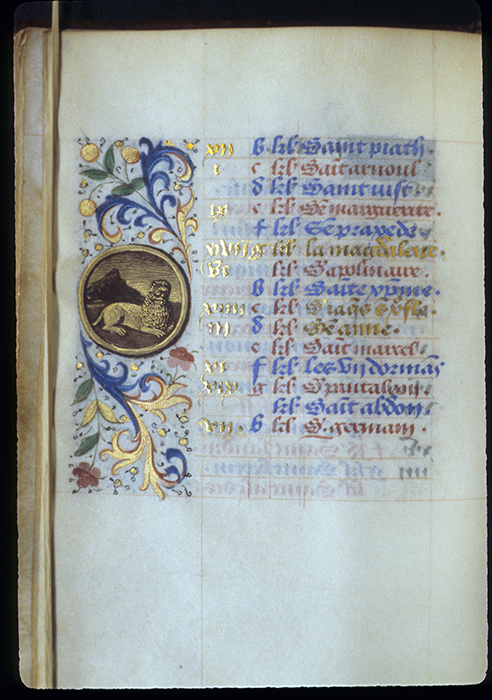 xvii b kl Saint piath.
i c kl Sait arnoul
d kl Saint vist.
ix e kl Se marguerite.
f kl Se praxede.
xvii g kl la magdalene.
vi kl S apolinaire.
b kl Saite xpine.
xiiii c kl S iaqs
iii d kl Se anne.
e kl Sait marcel.
xi f kl les vii dormas
xix g kl S pantaleon.
kl Sait abdon.
viii. b kl S. germain.